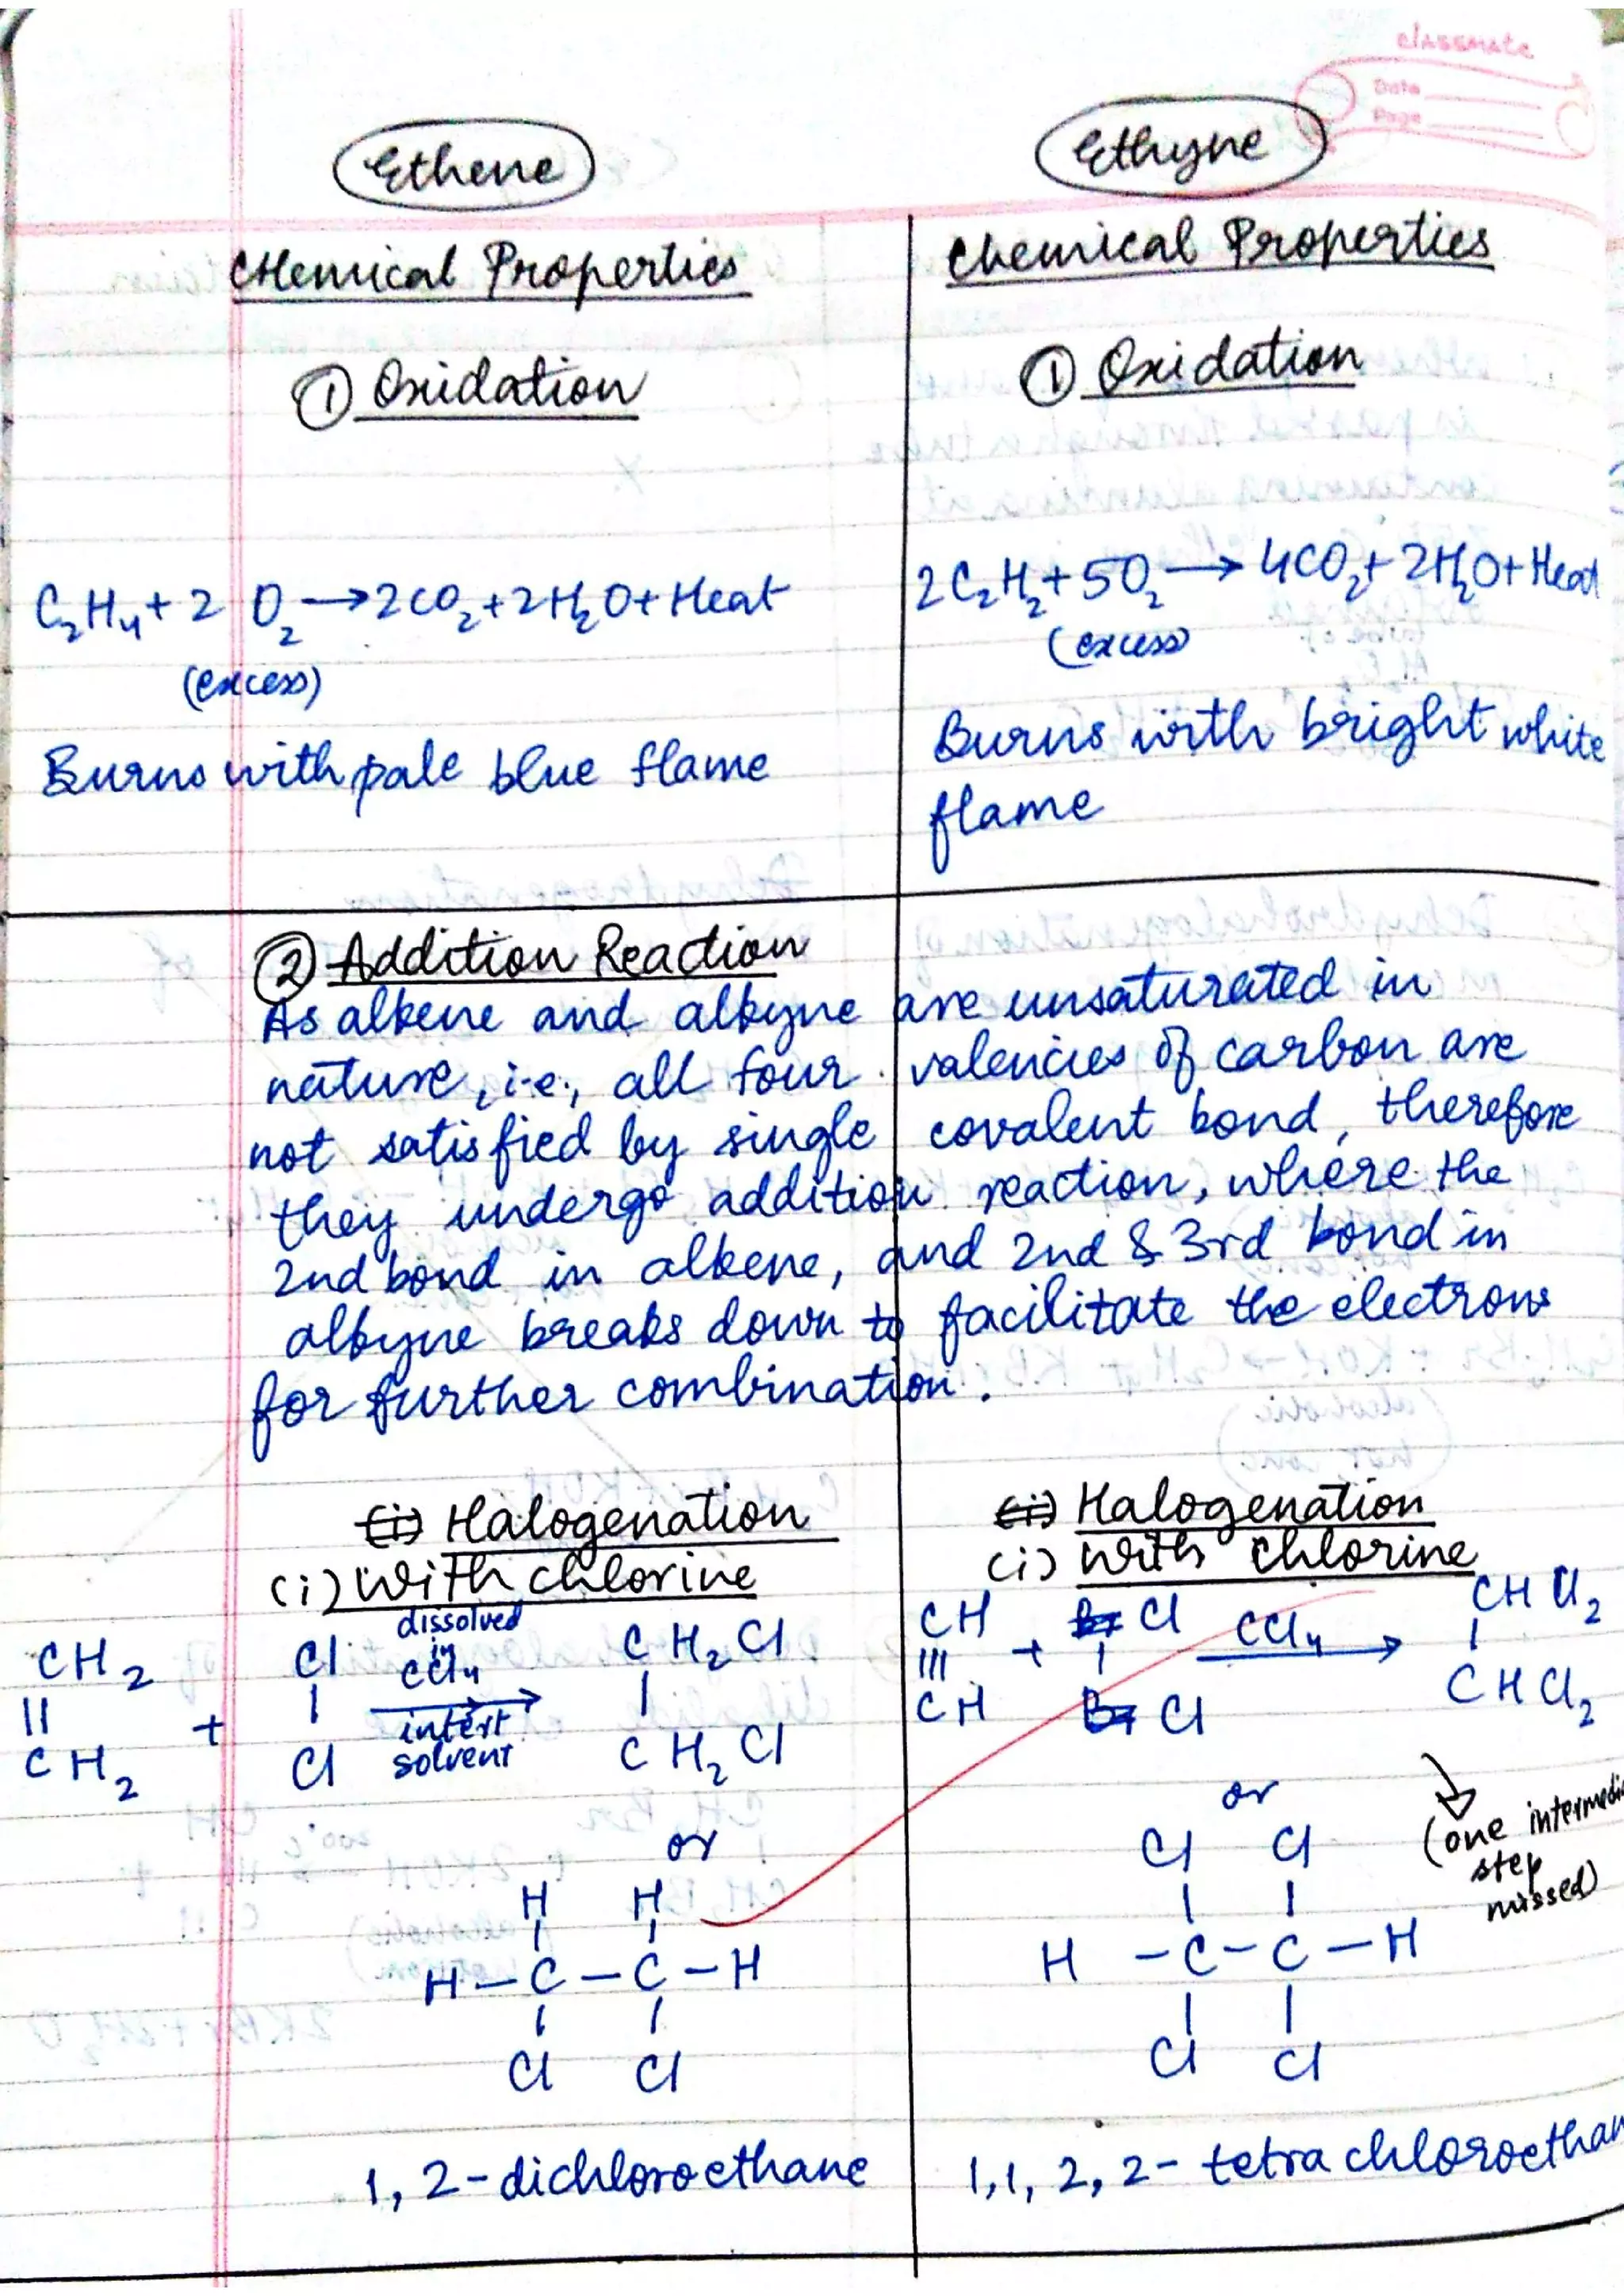 classmate
Date
Page
Ethene
Chemical Properties
① Oxidation
C₂H₄ + 2 O₂ → 2CO₂ + 2H₂O + Heat
(excess)
Burns with pale blue flame
Ethyne
Chemical Properties
① Oxidation
2C₂H₂ + 5O₂ → 4CO₂ + 2H₂O + Heat
(excess)
Burns with bright white
flame
② Addition Reaction
As alkene and alkyne are unsaturated in
nature, i.e., all four valencies of carbon are
not satisfied by single covalent bond, therefore
they undergo addition reaction, where the
2nd bond in alkene, and 2nd & 3rd bond in
alkyne breaks down to facilitate the electrons
for further combination.
(i) Halogenation
(i) With chlorine
dissolved
in
CH₂ Cl CCl₄ CH₂Cl
|| + | → |
CH₂ Cl intert CH₂Cl
solvent
or
H H
| |
H – C – C – H
| |
Cl Cl
1, 2-dichloroethane
(i) Halogenation
(i) With chlorine
CH Br Cl CCl₄ CHCl₂
||| + | → |
CH Br Cl CHCl₂
(one
step
missed)
or
Cl Cl
| |
H – C – C – H
| |
Cl Cl
1,1, 2, 2- tetrachloroethan